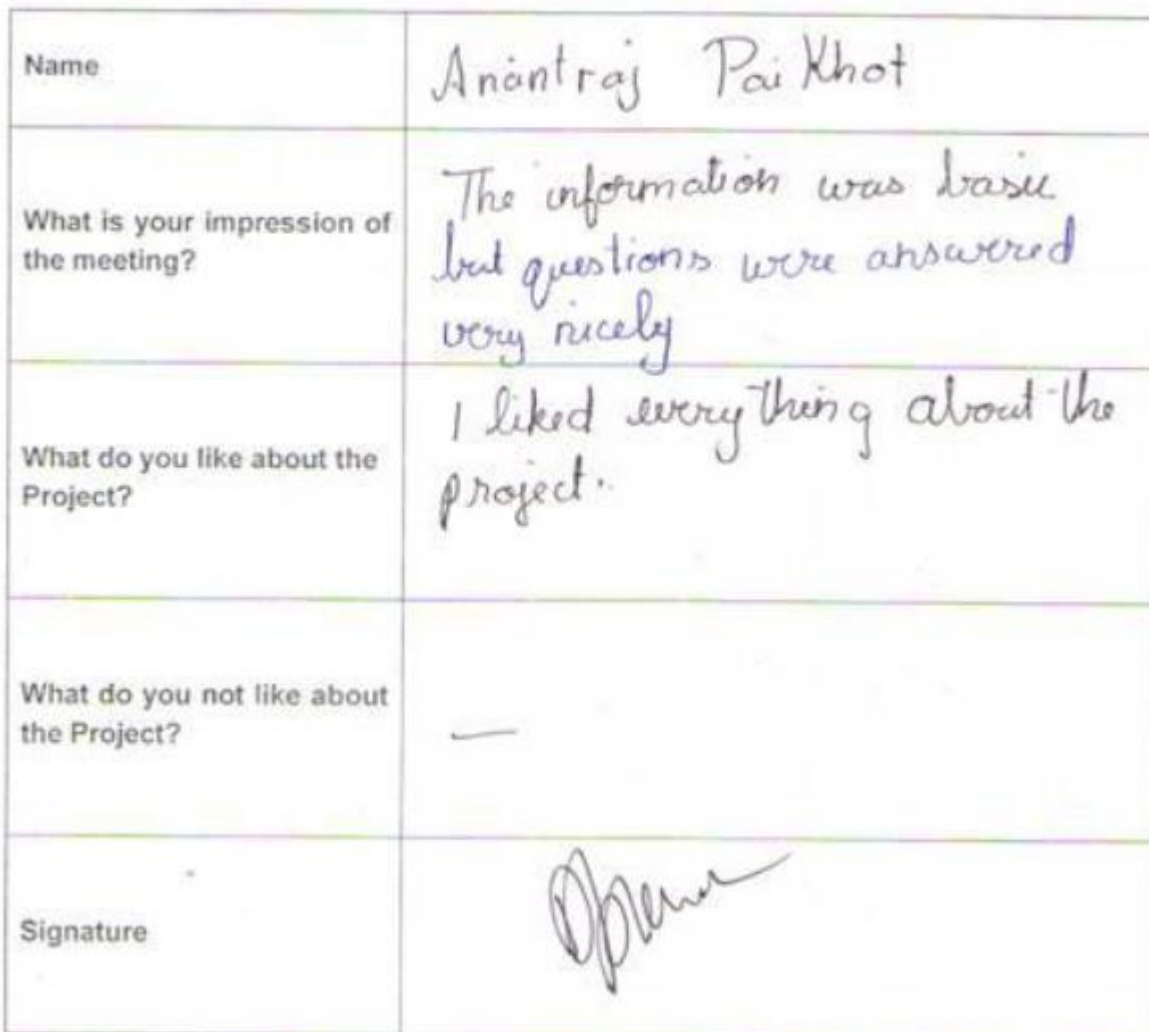 Name
Anantraj Pai Khot
What is your impression of
the meeting?
The information was basic
but questions were answered
very nicely
What do you like about the
Project?
I liked everything about the
project.
What do you not like about
the Project?
—
Signature